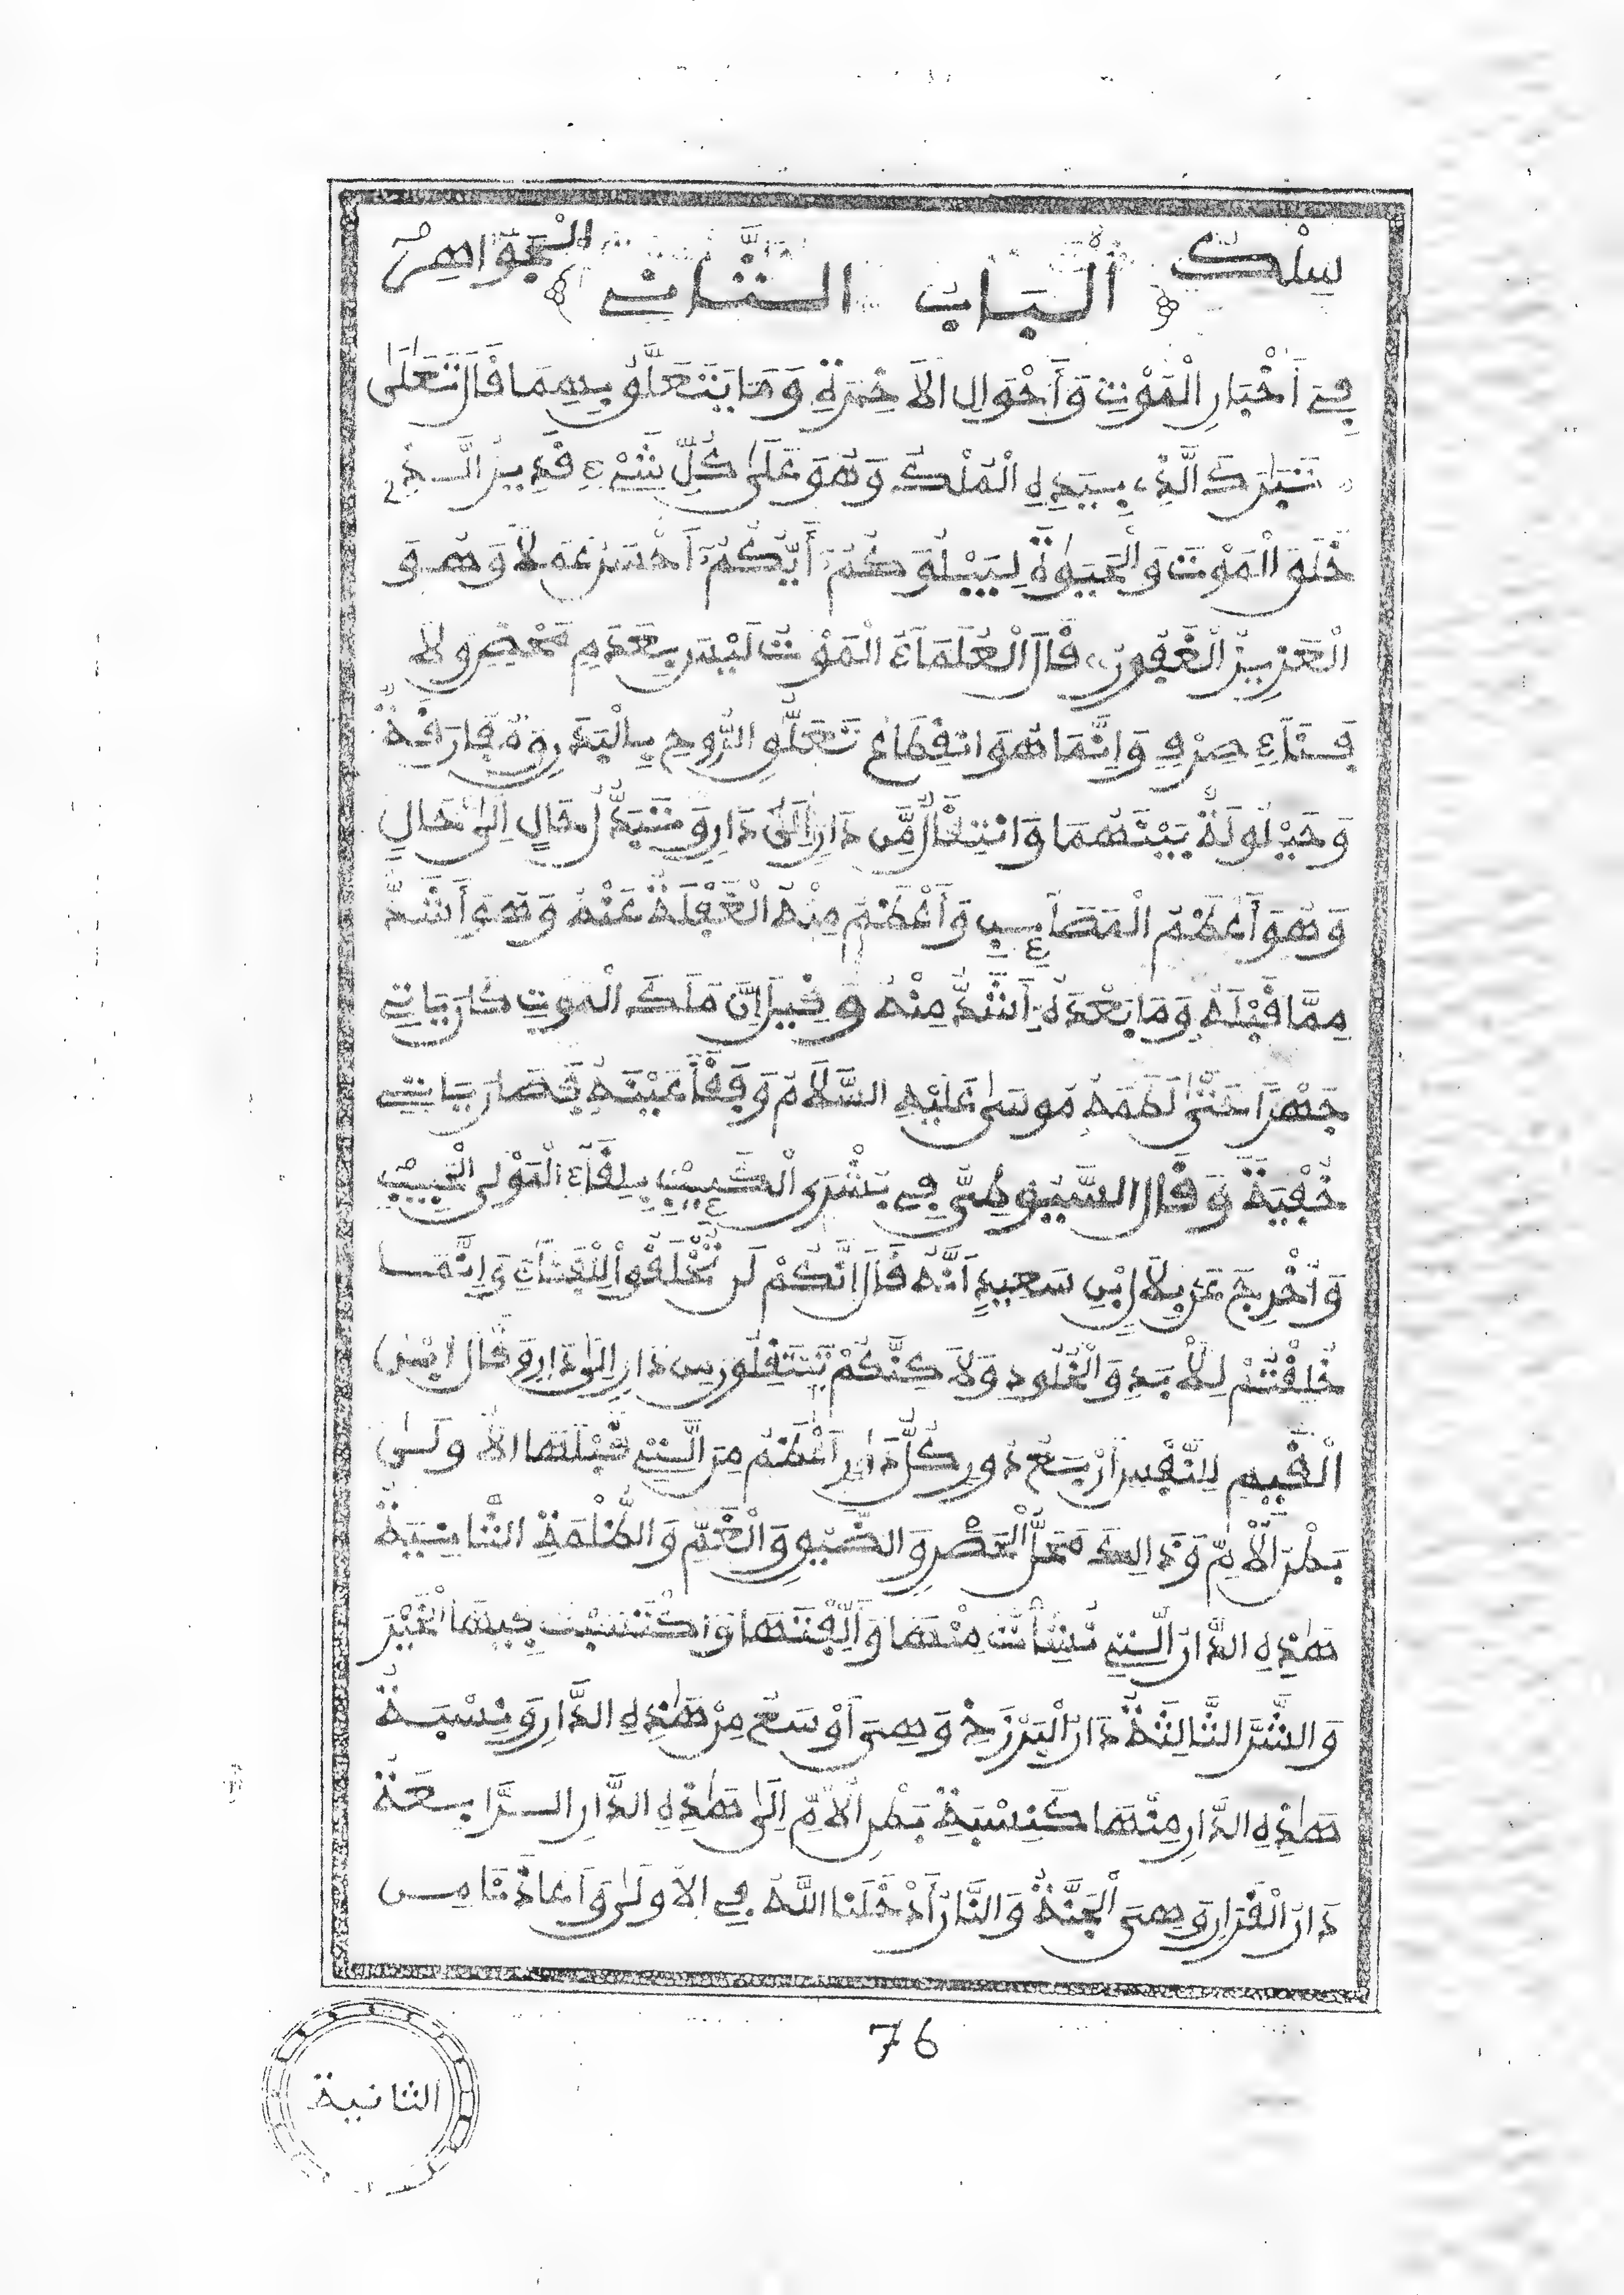 سِلْكُ الْجَوَاهِرِ
اَلْبَابُ الثَّانِي
فِي أَخْبَارِ الْمَوْتِ وَأَحْوَالِ الآخِرَةِ وَمَا يَتَعَلَّقُ بِهِمَا قَالَ تَعَلَىٰ
تَبَٰرَكَ الَّذِي بِيَدِهِ الْمُلْكُ وَهُوَ عَلَىٰ كُلِّ شَيْءٍ قَدِيرٌ الَّذِي
خَلَقَ الْمَوْتَ وَالْحَيَوٰةَ لِيَبْلُوَكُمْ أَيُّكُمْ أَحْسَنُ عَمَلاً وَهُوَ
الْعَزِيزُ الْغَفُورُ، قَالَ الْعُلَمَاءُ الْمَوْتُ لَيْسَ بِعَدَمٍ مَحْضٍ وَلاَ
فَنَاءٍ صِرْفٍ وَإِنَّمَا هُوَ انْقِطَاعُ تَعَلُّقِ الرُّوحِ بِالْبَدَنِ وَمُفَارَقَةٌ
وَحَيْلُولَةٌ بَيْنَهُمَا وَانْتِقَالٌ مِّن دَارٍ إِلَىٰ دَارٍ وَتَبَدُّلُ حَالٍ إِلَىٰ حَالٍ
وَهُوَ أَعْظَمُ الْمَصَآئِبِ وَأَعْظَمُ مِنْهُ الْغَفْلَةُ عَنْهُ وَهُوَ أَشَدُّ
مِمَّا قَبْلَهُ وَمَا بَعْدَهُ أَشَدُّ مِنْهُ وَقِيلَ إِنَّ مَلَكَ الْمَوْتِ كَانَ يَاتِي
جَهْراً حَتَّىٰ لَطَمَهُ مُوسَىٰ عَلَيْهِ السَّلاَمُ وَفَقَأَ عَيْنَهُ فَصَارَ يَاتِي
خُفْيَةً وَقَالَ السُّيُوطِيُّ فِي بُشْرَى الْكَئِيبِ بِلِقَآءِ الْمَوْلَى الْحَبِيبِ
وَأُخْرِجَ عَن بِلاَلِ ابْنِ سَعِيدٍ أَنَّهُ قَالَ إِنَّكُمْ لَن تُخْلَقُوا لِلْفَنَاءِ وَإِنَّمَا
خُلِقْتُمْ لِلْأَبَدِ وَالْخُلُودِ وَلاَكِنَّكُمْ تَنْتَقِلُونَ مِن دَارٍ إِلَىٰ دَارٍ وَقَالَ ابْنُ
الْقَيِّمِ لِلنَّفْسِ أَرْبَعُ دُورٍ كُلُّ دَارٍ أَعْظَمُ مِنَ الَّتِي قَبْلَهَا الأُولَىٰ
بَطْنُ الْأُمِّ وَذَالِكَ مَحَلُّ الْحَصْرِ وَالضِّيقِ وَالْغَمِّ وَالظُّلْمَةِ الثَّانِيَةُ
هَٰذِهِ الدَّارُ الَّتِي نَشَأَتْ مِنْهَا وَأَلِفَتْهَا وَاكْتَسَبَتْ فِيهَا الْخَيْرَ
وَالشَّرَّ الثَّالِثَةُ دَارُ الْبَرْزَخِ وَهِىَ أَوْسَعُ مِنْ هَٰذِهِ الدَّارِ وَنِسْبَةُ
هَٰذِهِ الدَّارِ مِنْهَا كَنِسْبَةِ بَطْنِ الْأُمِّ إِلَىٰ هَٰذِهِ الدَّارِ الرَّابِعَةُ
دَارُ الْقَرَارِ وَهِىَ الْجَنَّةُ وَالنَّارُ أَدْخَلَنَا اللَّهُ فِي الأُولَىٰ وَأَعَاذَنَا مِن
76
الثانية